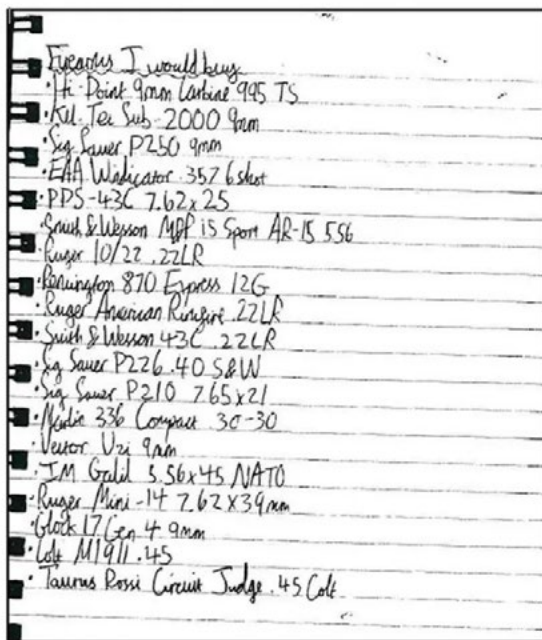 Firearms I would buy
• Hi-Point 9mm Carbine 995 TS
• Kel-Tec Sub-2000 9mm
• Sig Sauer P250 9mm
• EAA Windicator .357 6 shot
• PPS-43C 7.62x25
• Smith & Wesson M&P 15 Sport AR-15 556
• Ruger 10/22 .22LR
• Remington 870 Express 12G
• Ruger American Rimfire .22LR
• Smith & Wesson 43C .22LR
• Sig Sauer P226 .40 S&W
• Sig Sauer P210 7.65x21
• Marlin 336 Compact 30-30
• Vector Uzi 9mm
• IM Galil 5.56x45 NATO
• Ruger Mini-14 7.62x39mm
• Glock 17 Gen 4 9mm
• Colt M1911 .45
• Taurus Rossi Circuit Judge .45 Colt